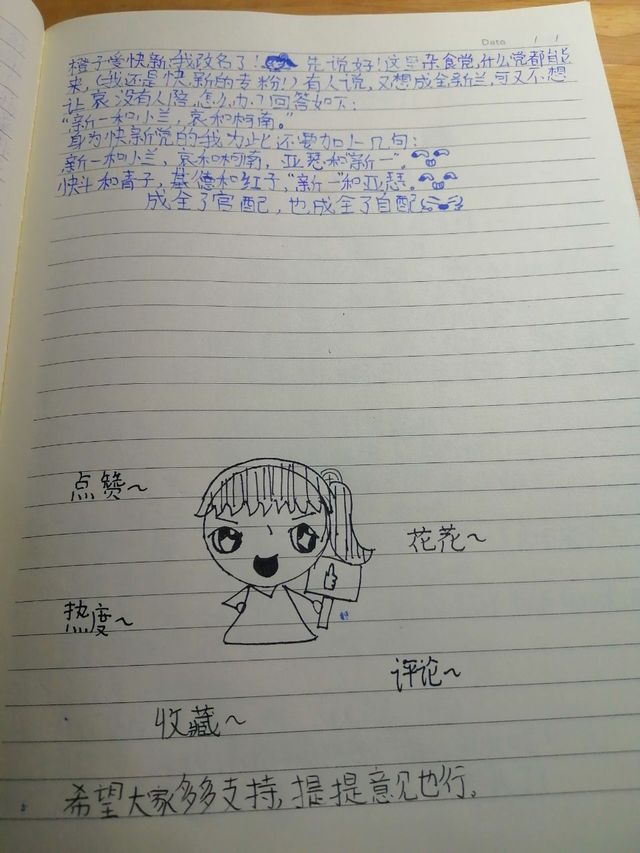 Date / /
橙子爱快新:我改名了! 先说好!这里杂食党,什么党都能
来,(我还是快新的专粉!)有人说,又想成全新兰,可又不想
让哀没有人陪,怎么办?回答如下:
“新一和小兰,哀和柯南。”
身为快新党的我为此还要加上几句:
新一和小兰,哀和柯南,亚瑟和“新一”。
快斗和青子,基德和红子,“新一”和亚瑟。
成全了官配,也成全了自配
点赞~
花花~
热度~
评论~
收藏~
希望大家多多支持,提提意见也行。